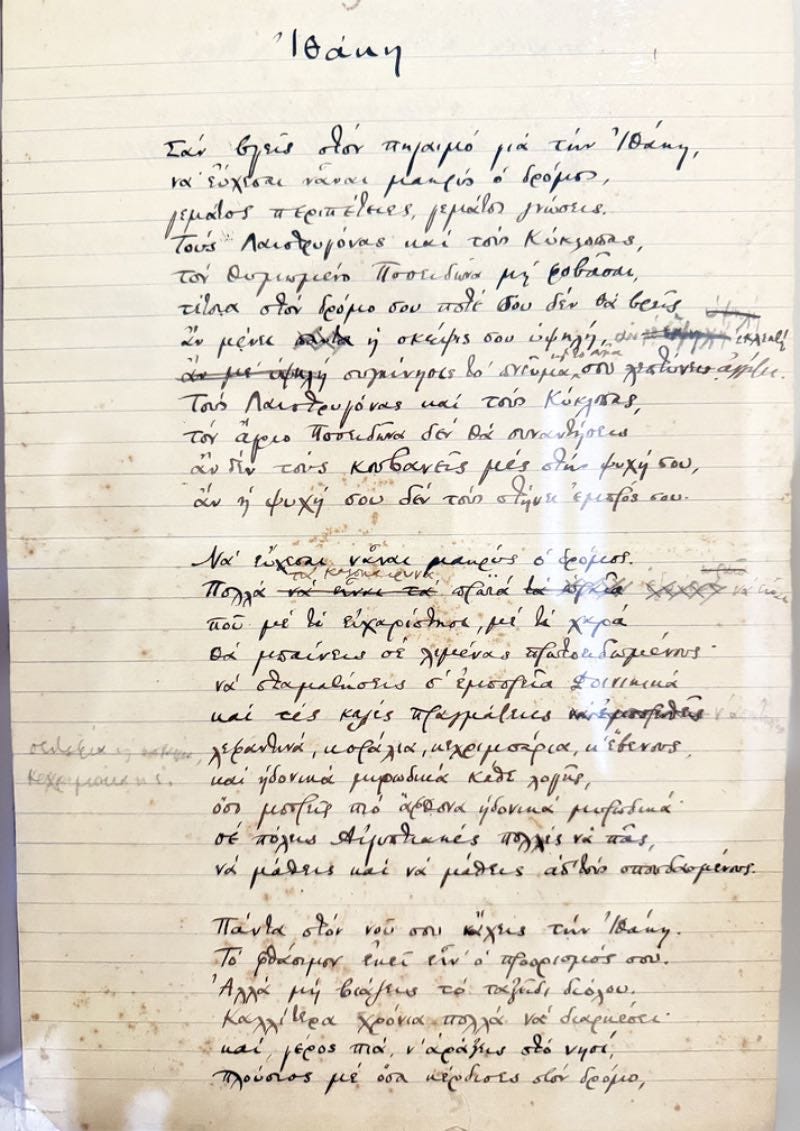 Ἰθάκη
Σάν βγεῖς στόν πηγαιμό γιά τήν Ἰθάκη,
νά εὔχεσαι νἆναι μακρύς ὁ δρόμος,
γεμάτος περιπέτειες, γεμάτος γνώσεις.
Τούς Λαιστρυγόνας καί τούς Κύκλωπας,
τόν θυμωμένο Ποσειδῶνα μή φοβᾶσαι,
τέτοια στόν δρόμο σου ποτέ σου δέν θά βρεῖς
ἄν μένει πάντα ἡ σκέψις σου ὑψηλή, ἐκλεκτή
ἄν μέ ὑψηλή συγκίνησις τό πνεῦμα σου ἀγγίζει.
Τούς Λαιστρυγόνας καί τούς Κύκλωπας,
τόν ἄγριο Ποσειδῶνα δέν θά συναντήσεις
ἄν δέν τούς κουβανεῖς μές στήν ψυχή σου,
ἄν ἡ ψυχή σου δέν τούς στήνει ἐμπρός σου.
Νά εὔχεσαι νἆναι μακρύς ὁ δρόμος.
τά καλοκαιρινά
Πολλά νά εἶναι τά πρωϊά
πού μέ τί εὐχαρίστησι, μέ τί χαρά
θά μπαίνεις σέ λιμένας πρωτοειδωμένους·
νά σταματήσεις σ' ἐμπορεῖα Φοινικικά
καί τές καλές πραγμάτειες
σεντέφια
κεχριμπάρια, κ' ἔβενους,
κοράλλια,
καί ἡδονικά μυρωδικά κάθε λογῆς,
ὅσο μπορεῖς πιό ἄφθονα ἡδονικά μυρωδικά·
σέ πόλεις Αἰγυπτιακές πολλές νά πᾶς,
νά μάθεις καί νά μάθεις ἀπ' τούς σπουδασμένους.
Πάντα στόν νοῦ σου νἄχεις τήν Ἰθάκη.
Τό φθάσιμον ἐκεῖ εἶν' ὁ προορισμός σου.
Ἀλλά μή βιάζεις τό ταξεῖδι διόλου.
Καλλίτερα χρόνια πολλά νά διαρκέσει·
καί, γέρος πιά, ν' ἀράξεις στό νησί,
πλούσιος μέ ὅσα κέρδισες στόν δρόμο,